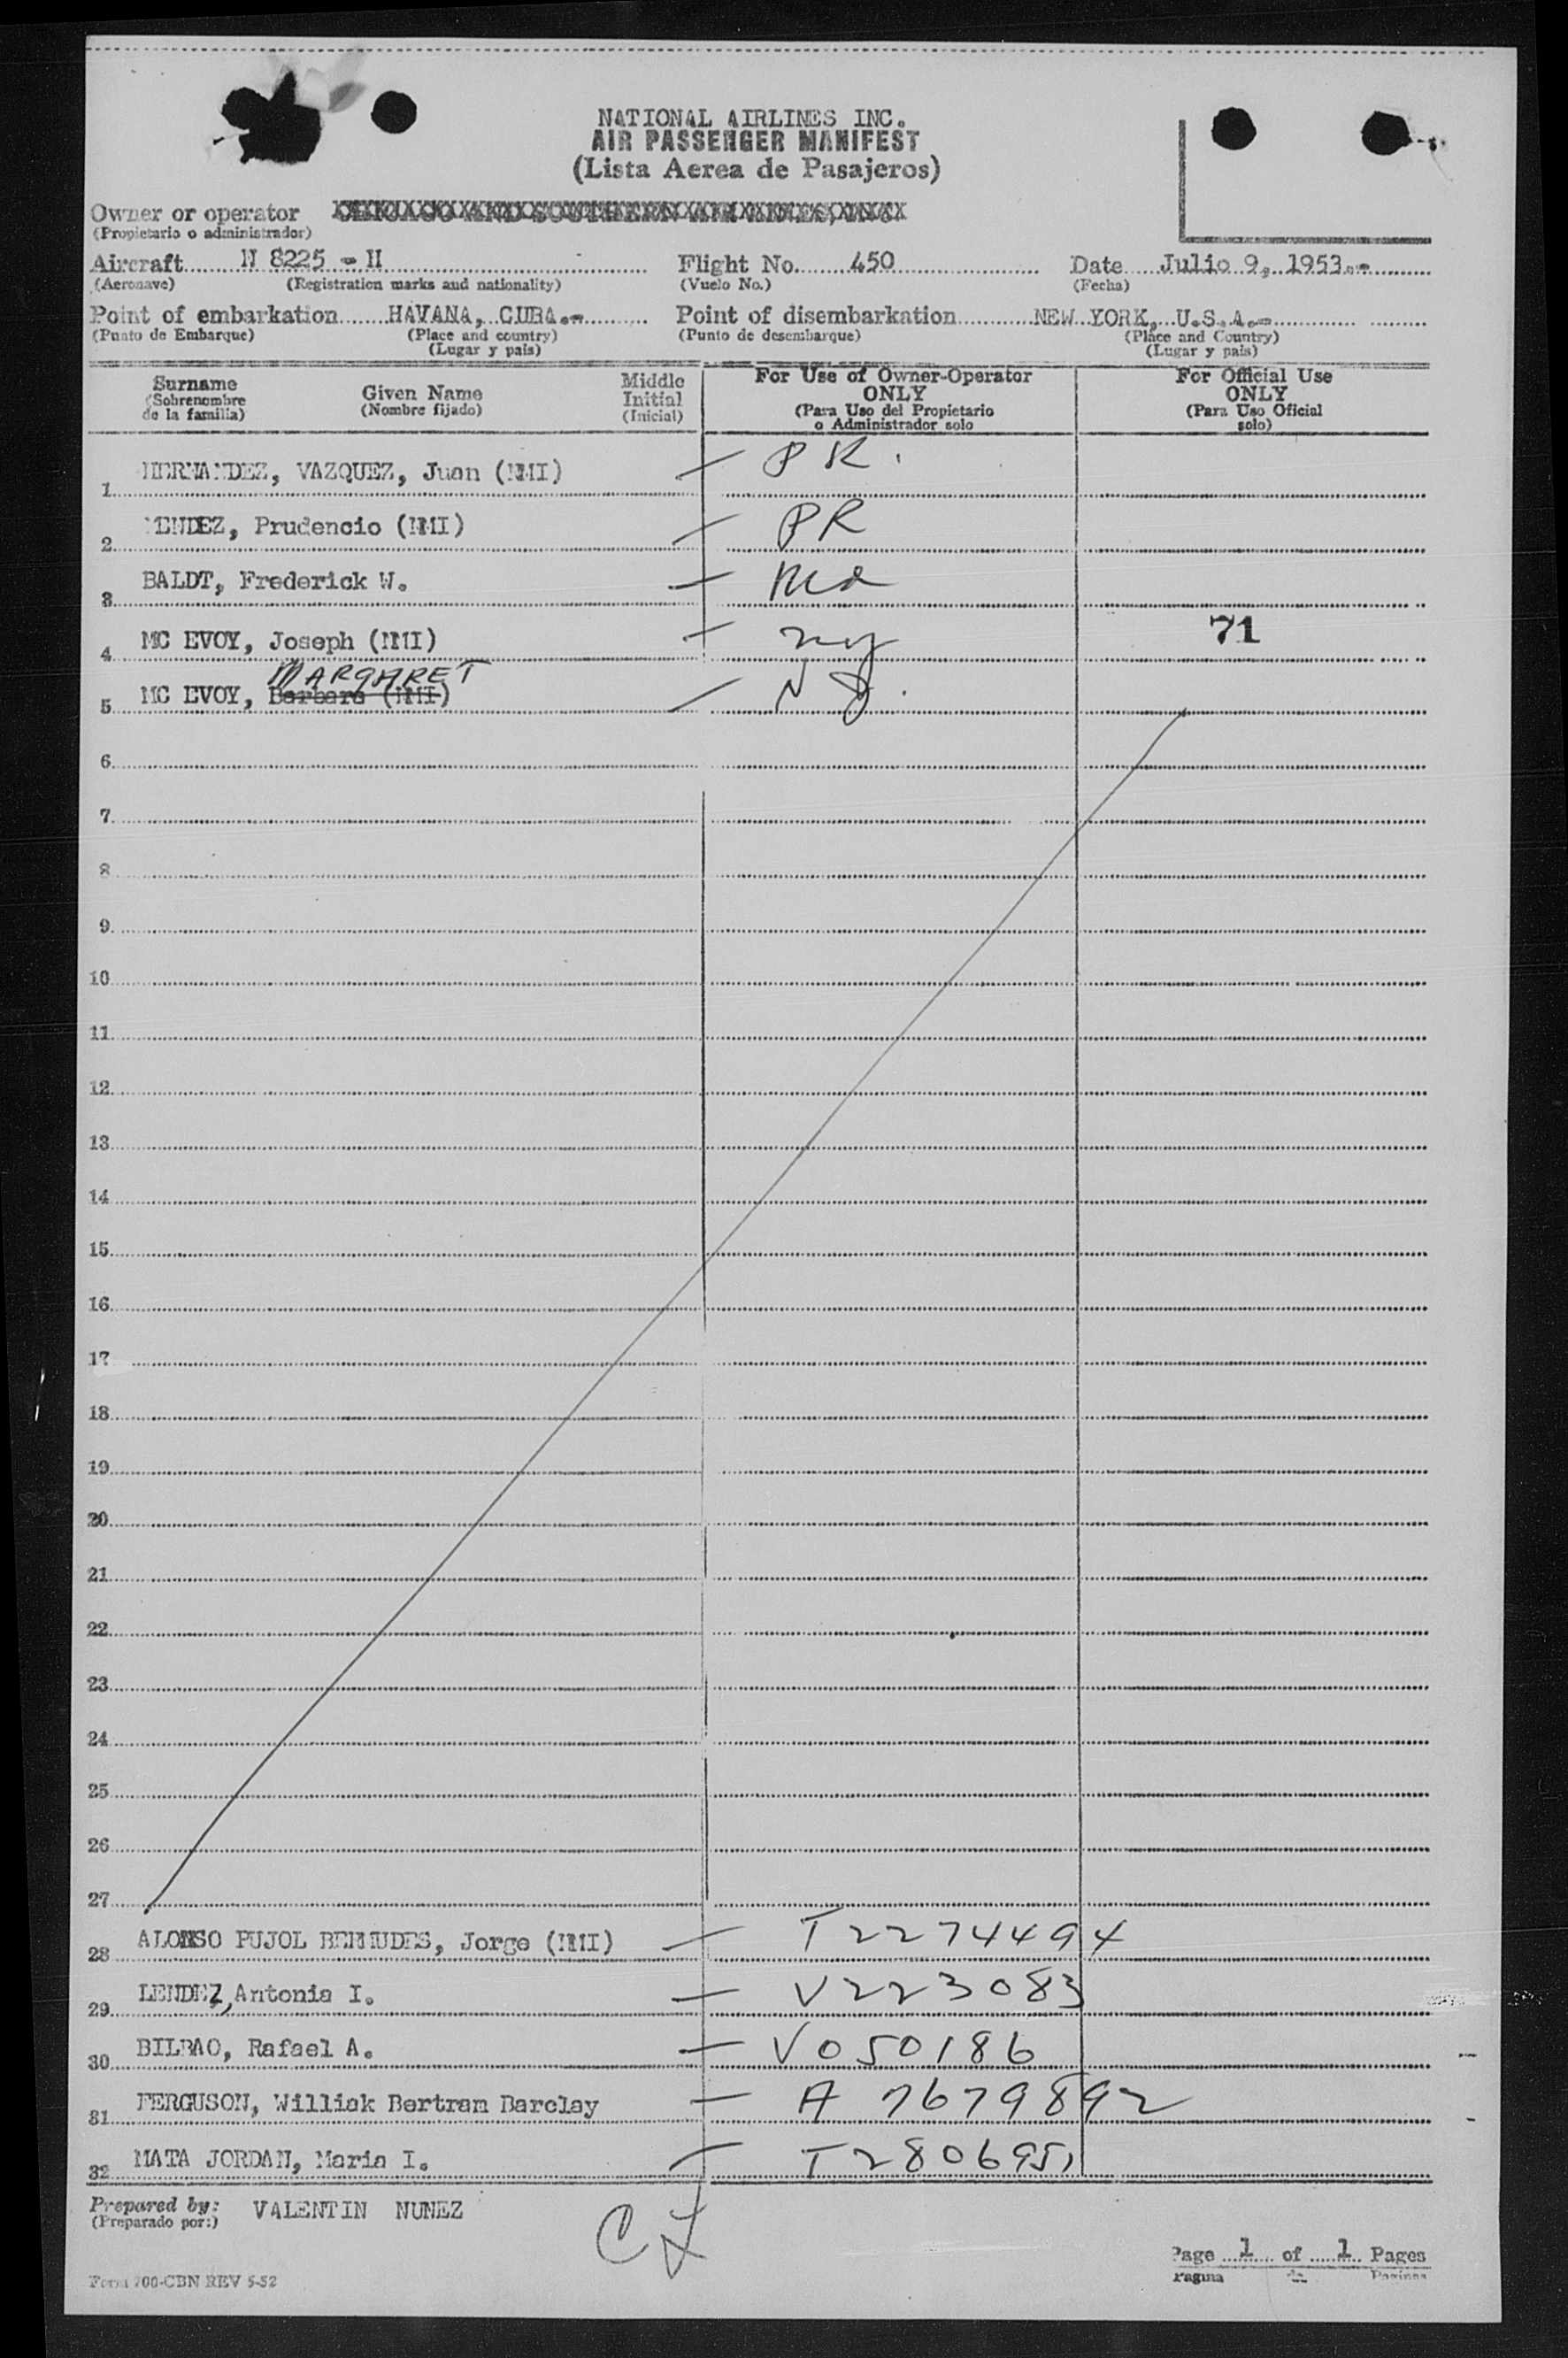 NATIONAL AIRLINES INC.
AIR PASSENGER MANIFEST
(Lista Aerea de Pasajeros)
Owner or operator
(Propietario o administrador)
Aircraft N 8225 - H Flight No. 450 Date Julio 9, 1953.-
(Aeronave) (Registration marks and nationality) (Vuelo No.) (Fecha)
Point of embarkation HAVANA, CUBA.- Point of disembarkation NEW YORK, U.S.A.-
(Punto de Embarque) (Place and country) (Punto de desembarque) (Place and Country)
(Lugar y pais) (Lugar y pais)
Surname Given Name Middle Initial For Use of Owner-Operator ONLY For Official Use ONLY
(Sobrenombre de la familia) (Nombre fijado) (Inicial) (Para Uso del Propietario o Administrador solo (Para Uso Oficial solo)
1 HERNANDEZ, VAZQUEZ, Juan (NMI) — PR.
2 MENDEZ, Prudencio (NMI) — PR
3 BALDT, Frederick W. — Md
4 MC EVOY, Joseph (NMI) — ny 71
MARGARET
5 MC EVOY, Barbara (NMI) — NJ.
6
7
8
9
10
11
12
13
14
15
16
17
18
19
20
21
22
23
24
25
26
27
28 ALONSO PUJOL BERMUDES, Jorge (NMI) — T2274494
29 LENDEZ, Antonia I. — V223083
30 BILBAO, Rafael A. — V050186
31 FERGUSON, Williak Bertram Barclay — A 7679892
32 MATA JORDAN, Maria I. — T280695
Prepared by: VALENTIN NUNEZ
(Preparado por:)
Page 1 of 1 Pages
Pagina de Paginas
Form 700-CBN REV 5-52